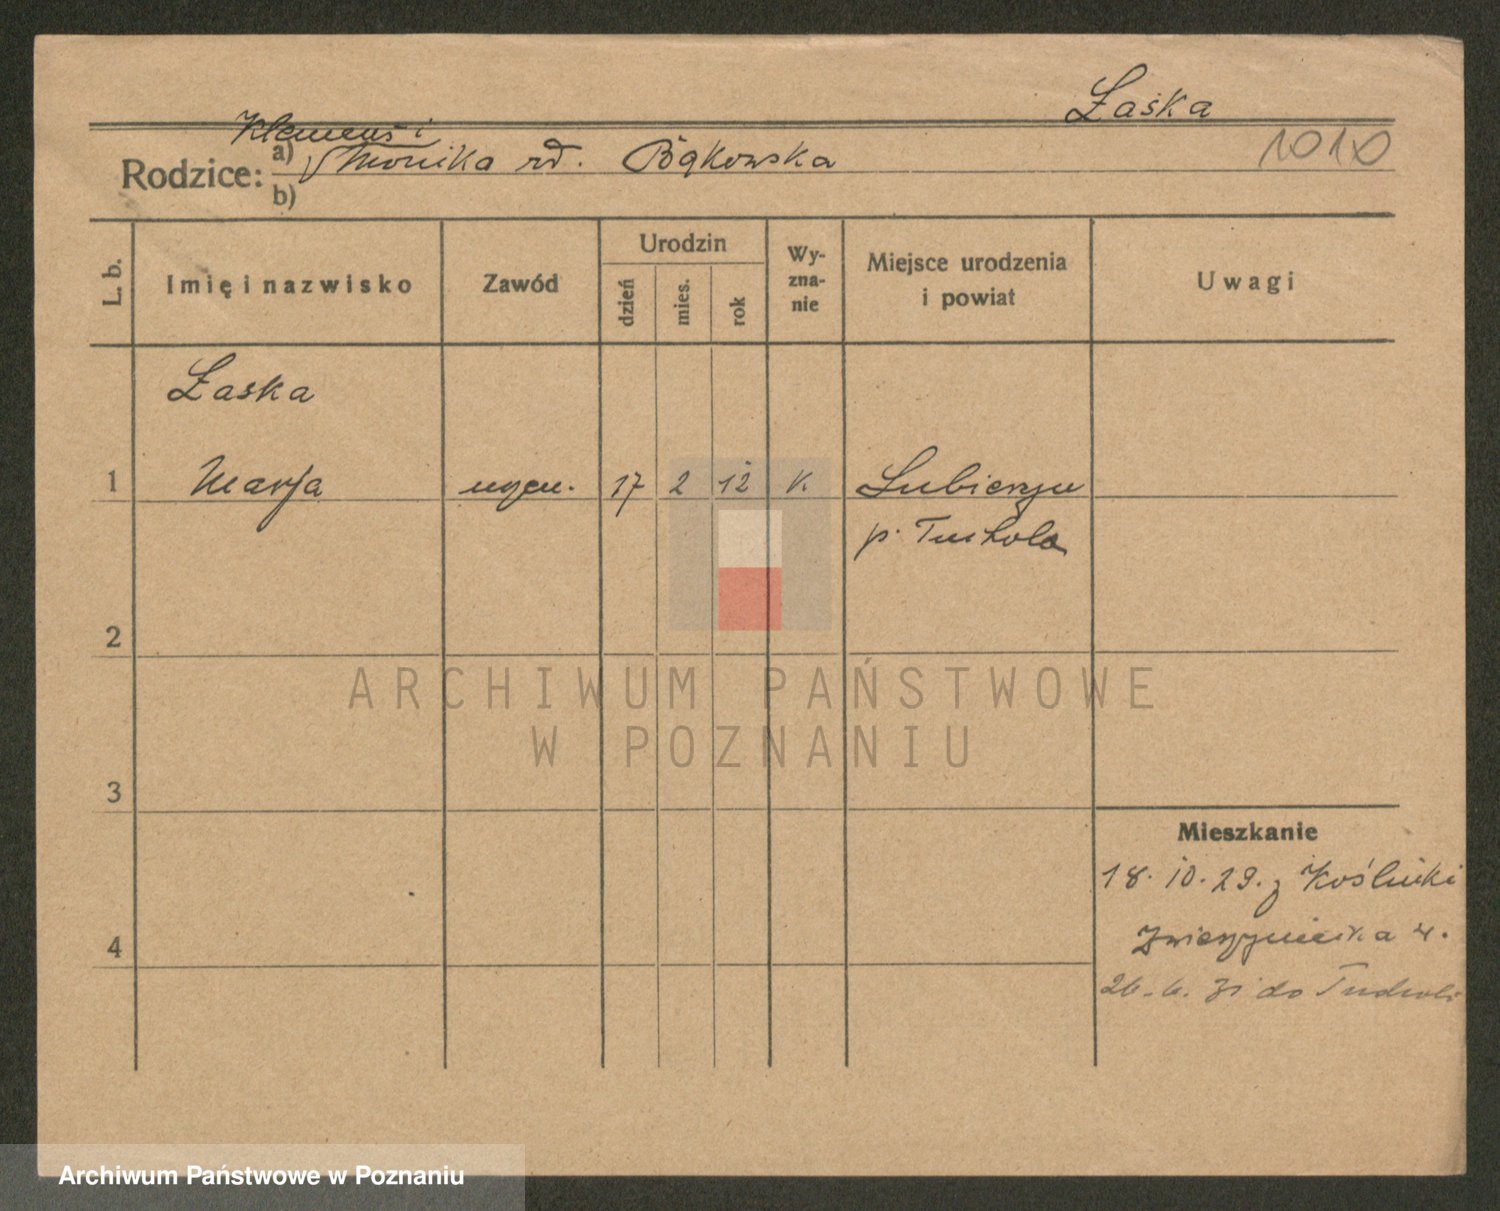 Łaska
1010
Klemens i
Rodzice: a) Monika rd. Bąkowska
b)
L. b. Imię i nazwisko Zawód Urodzin dzień mies. rok Wy-zna-nie Miejsce urodzenia i powiat Uwagi
Łaska
1 Marja uczen. 17 2 12 K Lubierzyn
p. Tuchola
2
3
4
Mieszkanie
18. 10. 29. z Koślinki
Zwierzyniecka 4.
26. 6. 31 do Tucholi
ARCHIWUM PAŃSTWOWE
W POZNANIU
Archiwum Państwowe w Poznaniu